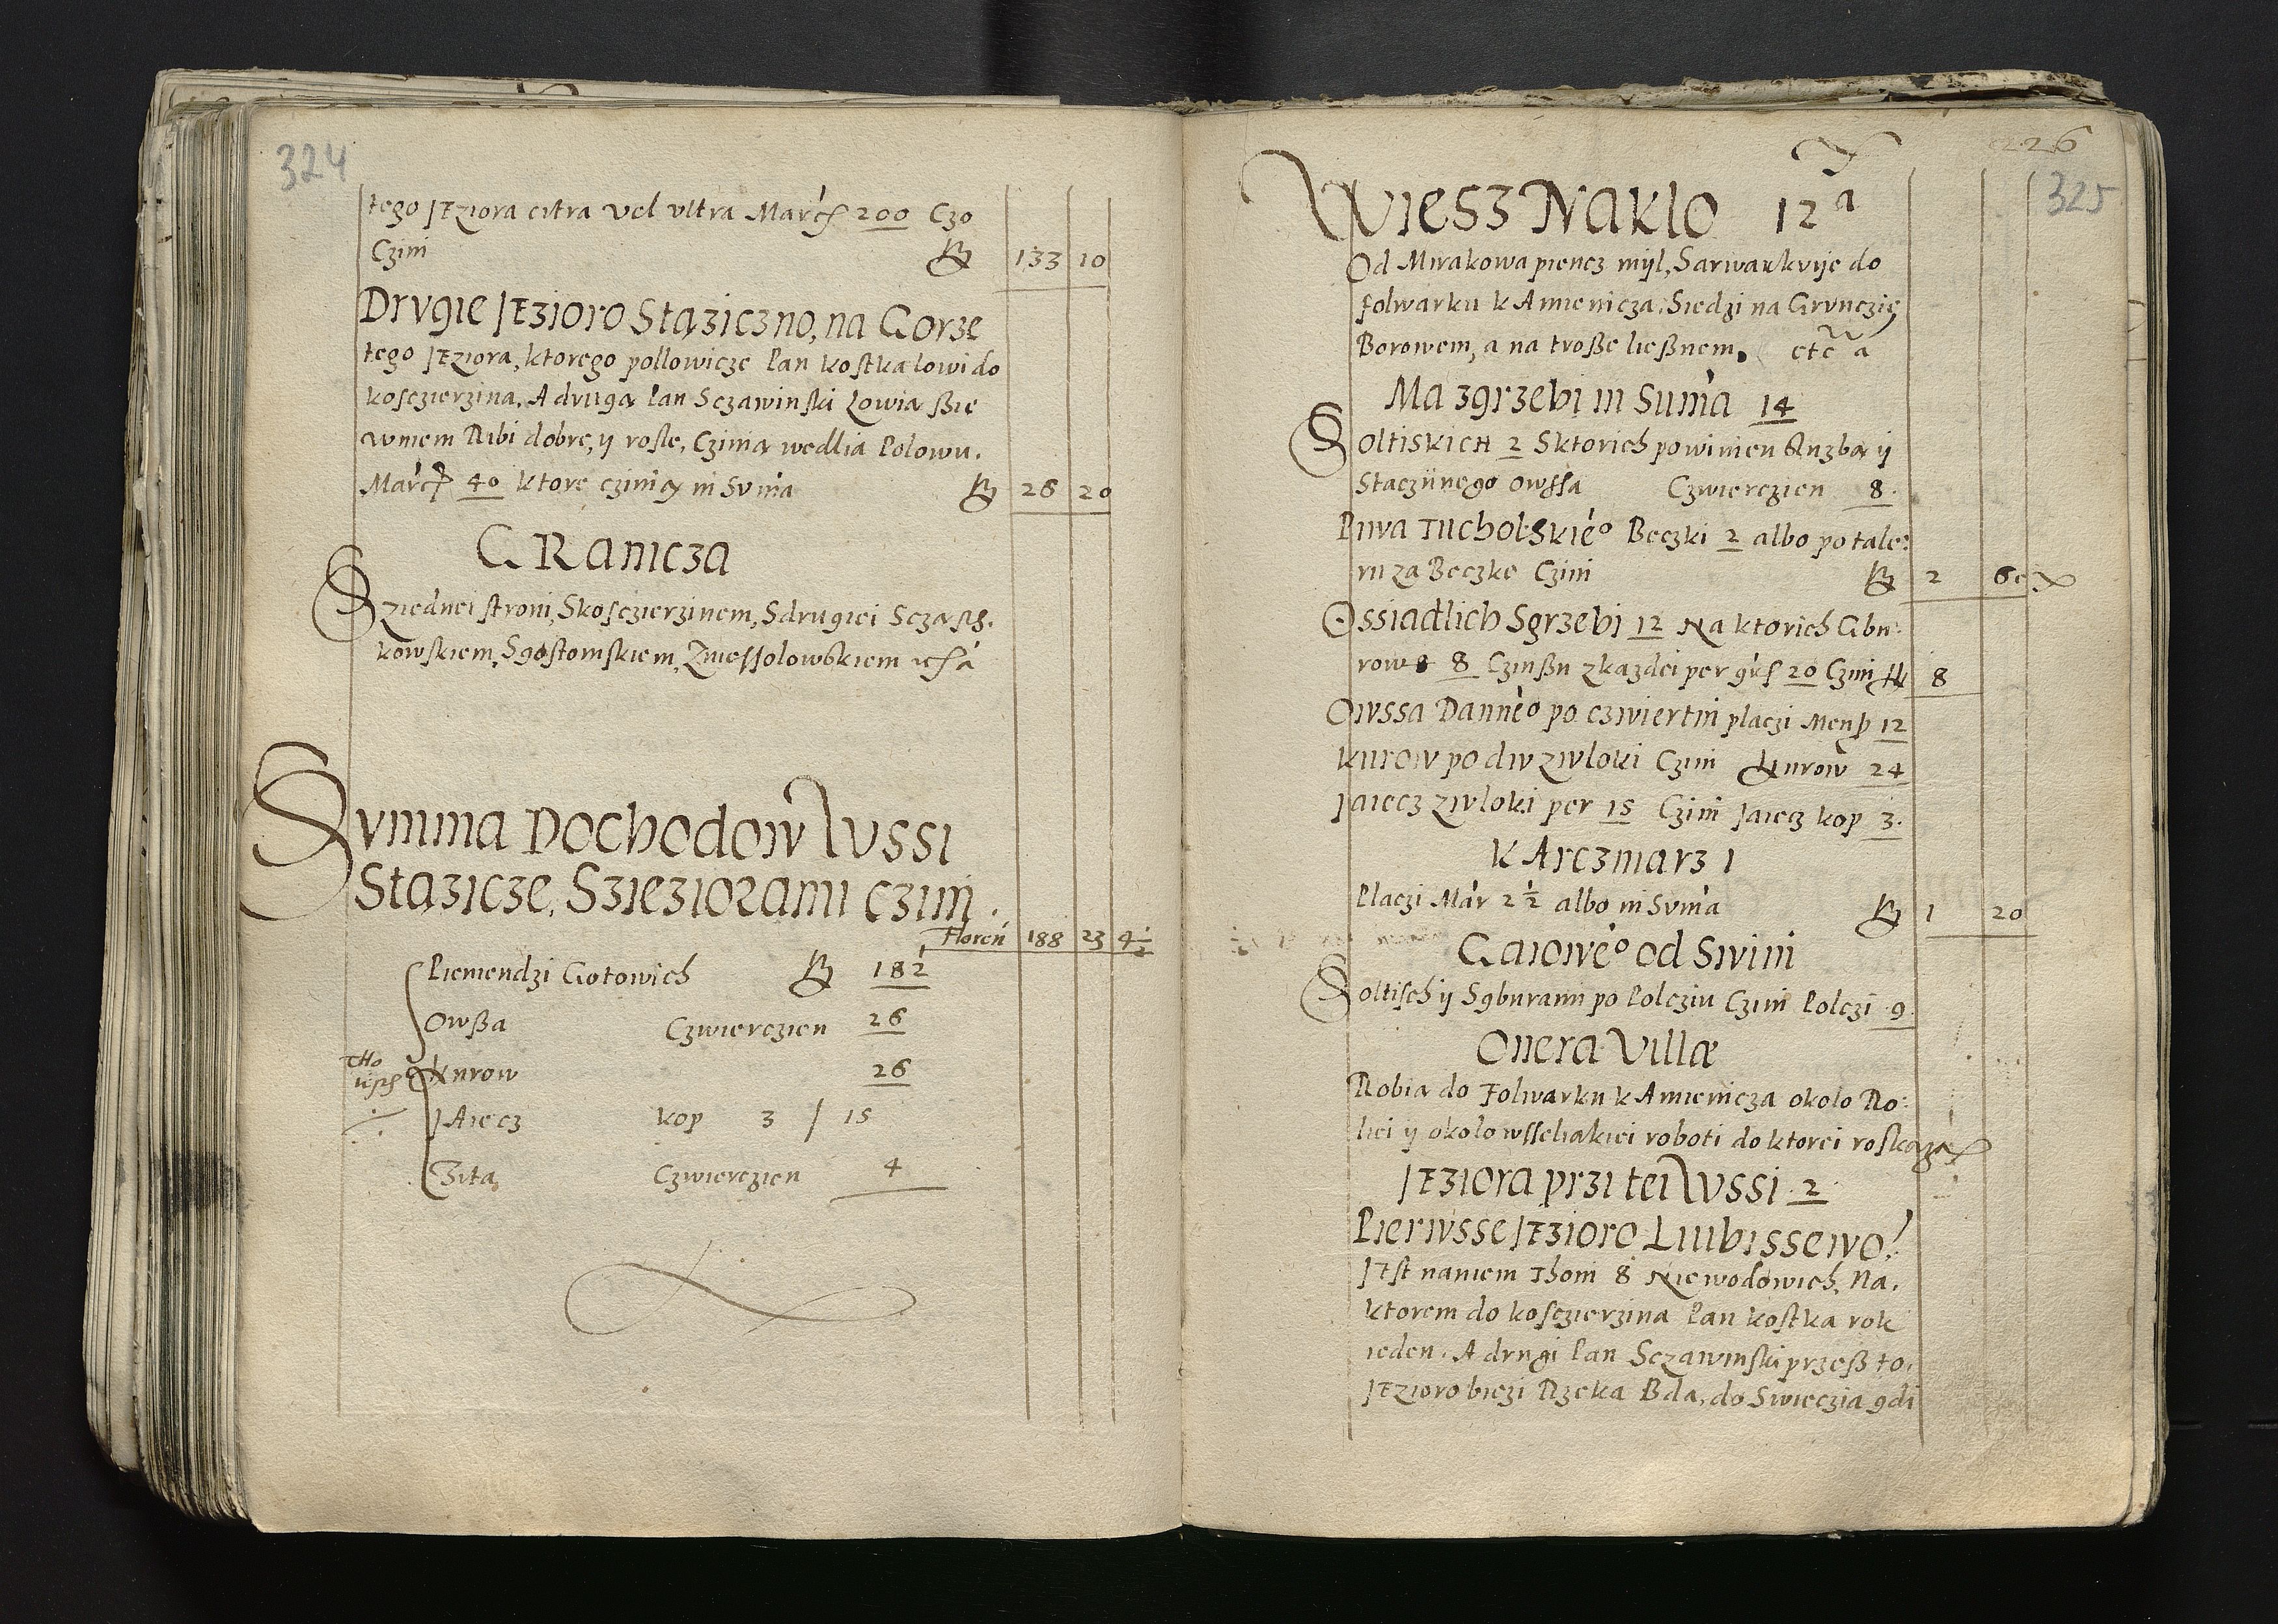 324
tego Jezıora cıtra vel vltra Marcꝭ 200 Czo
Czini fl 133 10
Drvgıe Jezıoro Stązıczno, na Gorze
tego Jezıora, ktorego pollowicze Pan kostka lowi do
kosczierzina. A druga Pan Sczawinski Lowia ßie
wniem Ribi dobre, ij rosle, Czinią wedlia Polowu.
Marcꝭ 40 ktore czinią in Suma fl 26 20
GRanicza
Sziednei stroni, Skosczierzinem, Sdrugiei
kowskiem, Sgostomskiem,
Summa Dochodow Wssi
Stazicze, Szieziorami czini.
Floren 188 23 4½
Pieniendzi Gotowich fl 182
Owßa Czwierczien 26
Kurow 26
JAiecz kop 3 / 15
Zita Czwierczien 4
226
325
Wiesz Naklo 12ᵃ
Od Mirakowa piencz mijl, Sarwarkvije do
folwarku kAmienicza. Siedzi na Grvnczie
Borowem, a na troße ließnem. etc a
Ma zgrzebi in Suma 14
Soltiskich 2 Sktorich powinien Sluzba ij
Staczijnego owssa Czwierczien 8.
Piwa Tucholskieo Beczki 2 albo po tale:
ru za Beczke Czini fl 2 60
Ossiadlich Sgrzebi 12 Na ktorich Gbu:
row 8 Czinßu zkazdei per grs 20 Czini fl 8
Owssa Danneo po czwiertni placzi Mens 12
kurow po dw zwloki Czini Kurow 24
Jaiecz zwloki per 15 Czini Jaiecz kop 3.
kArczmarz 1
Placzi Mar 2½ albo in Suma fl 1 20
Gaioweo od Swini
Soltisch ij Sgburami po Polcziu Czini Polczi 9
Onera Villæ
Robia do Folwarku kAmienicza okolo Ro:
liei ij okolo wsseliakiei roboti do ktorei roskaza
Jeziora przi tei Wssi 2
Pierwsse Jezioro Liubissewo.
Jest naniem Thoni 8 Niewodowich, Na.
ktorem do kosczierzina Pan kostka rok
ieden. A drugi Pan Sczawinski przeß to.
Jezioro bieżi Rzeka Bda, do Swieczia gdi